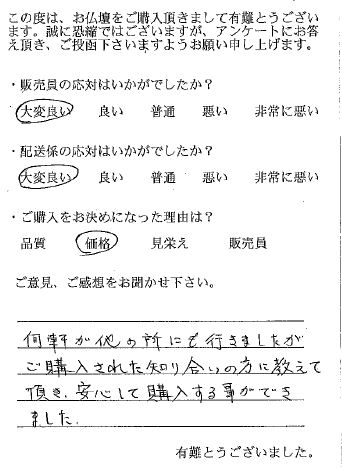 この度は、お仏壇をご購入頂きまして有難とうござい
ます。誠に恐縮ではございますが、アンケートにお答
え頂き、ご投函下さいますようお願い申し上げます。
・販売員の応対はいかがでしたか？
大変良い 良い 普通 悪い 非常に悪い
・配送係の応対はいかがでしたか？
大変良い 良い 普通 悪い 非常に悪い
・ご購入をお決めになった理由は？
品質 価格 見栄え 販売員
ご意見、ご感想をお聞かせ下さい。
何軒か他の所にも行きましたが
ご購入された知り合いの方に教えて
頂き、安心して購入する事ができ
ました。
有難とうございました。